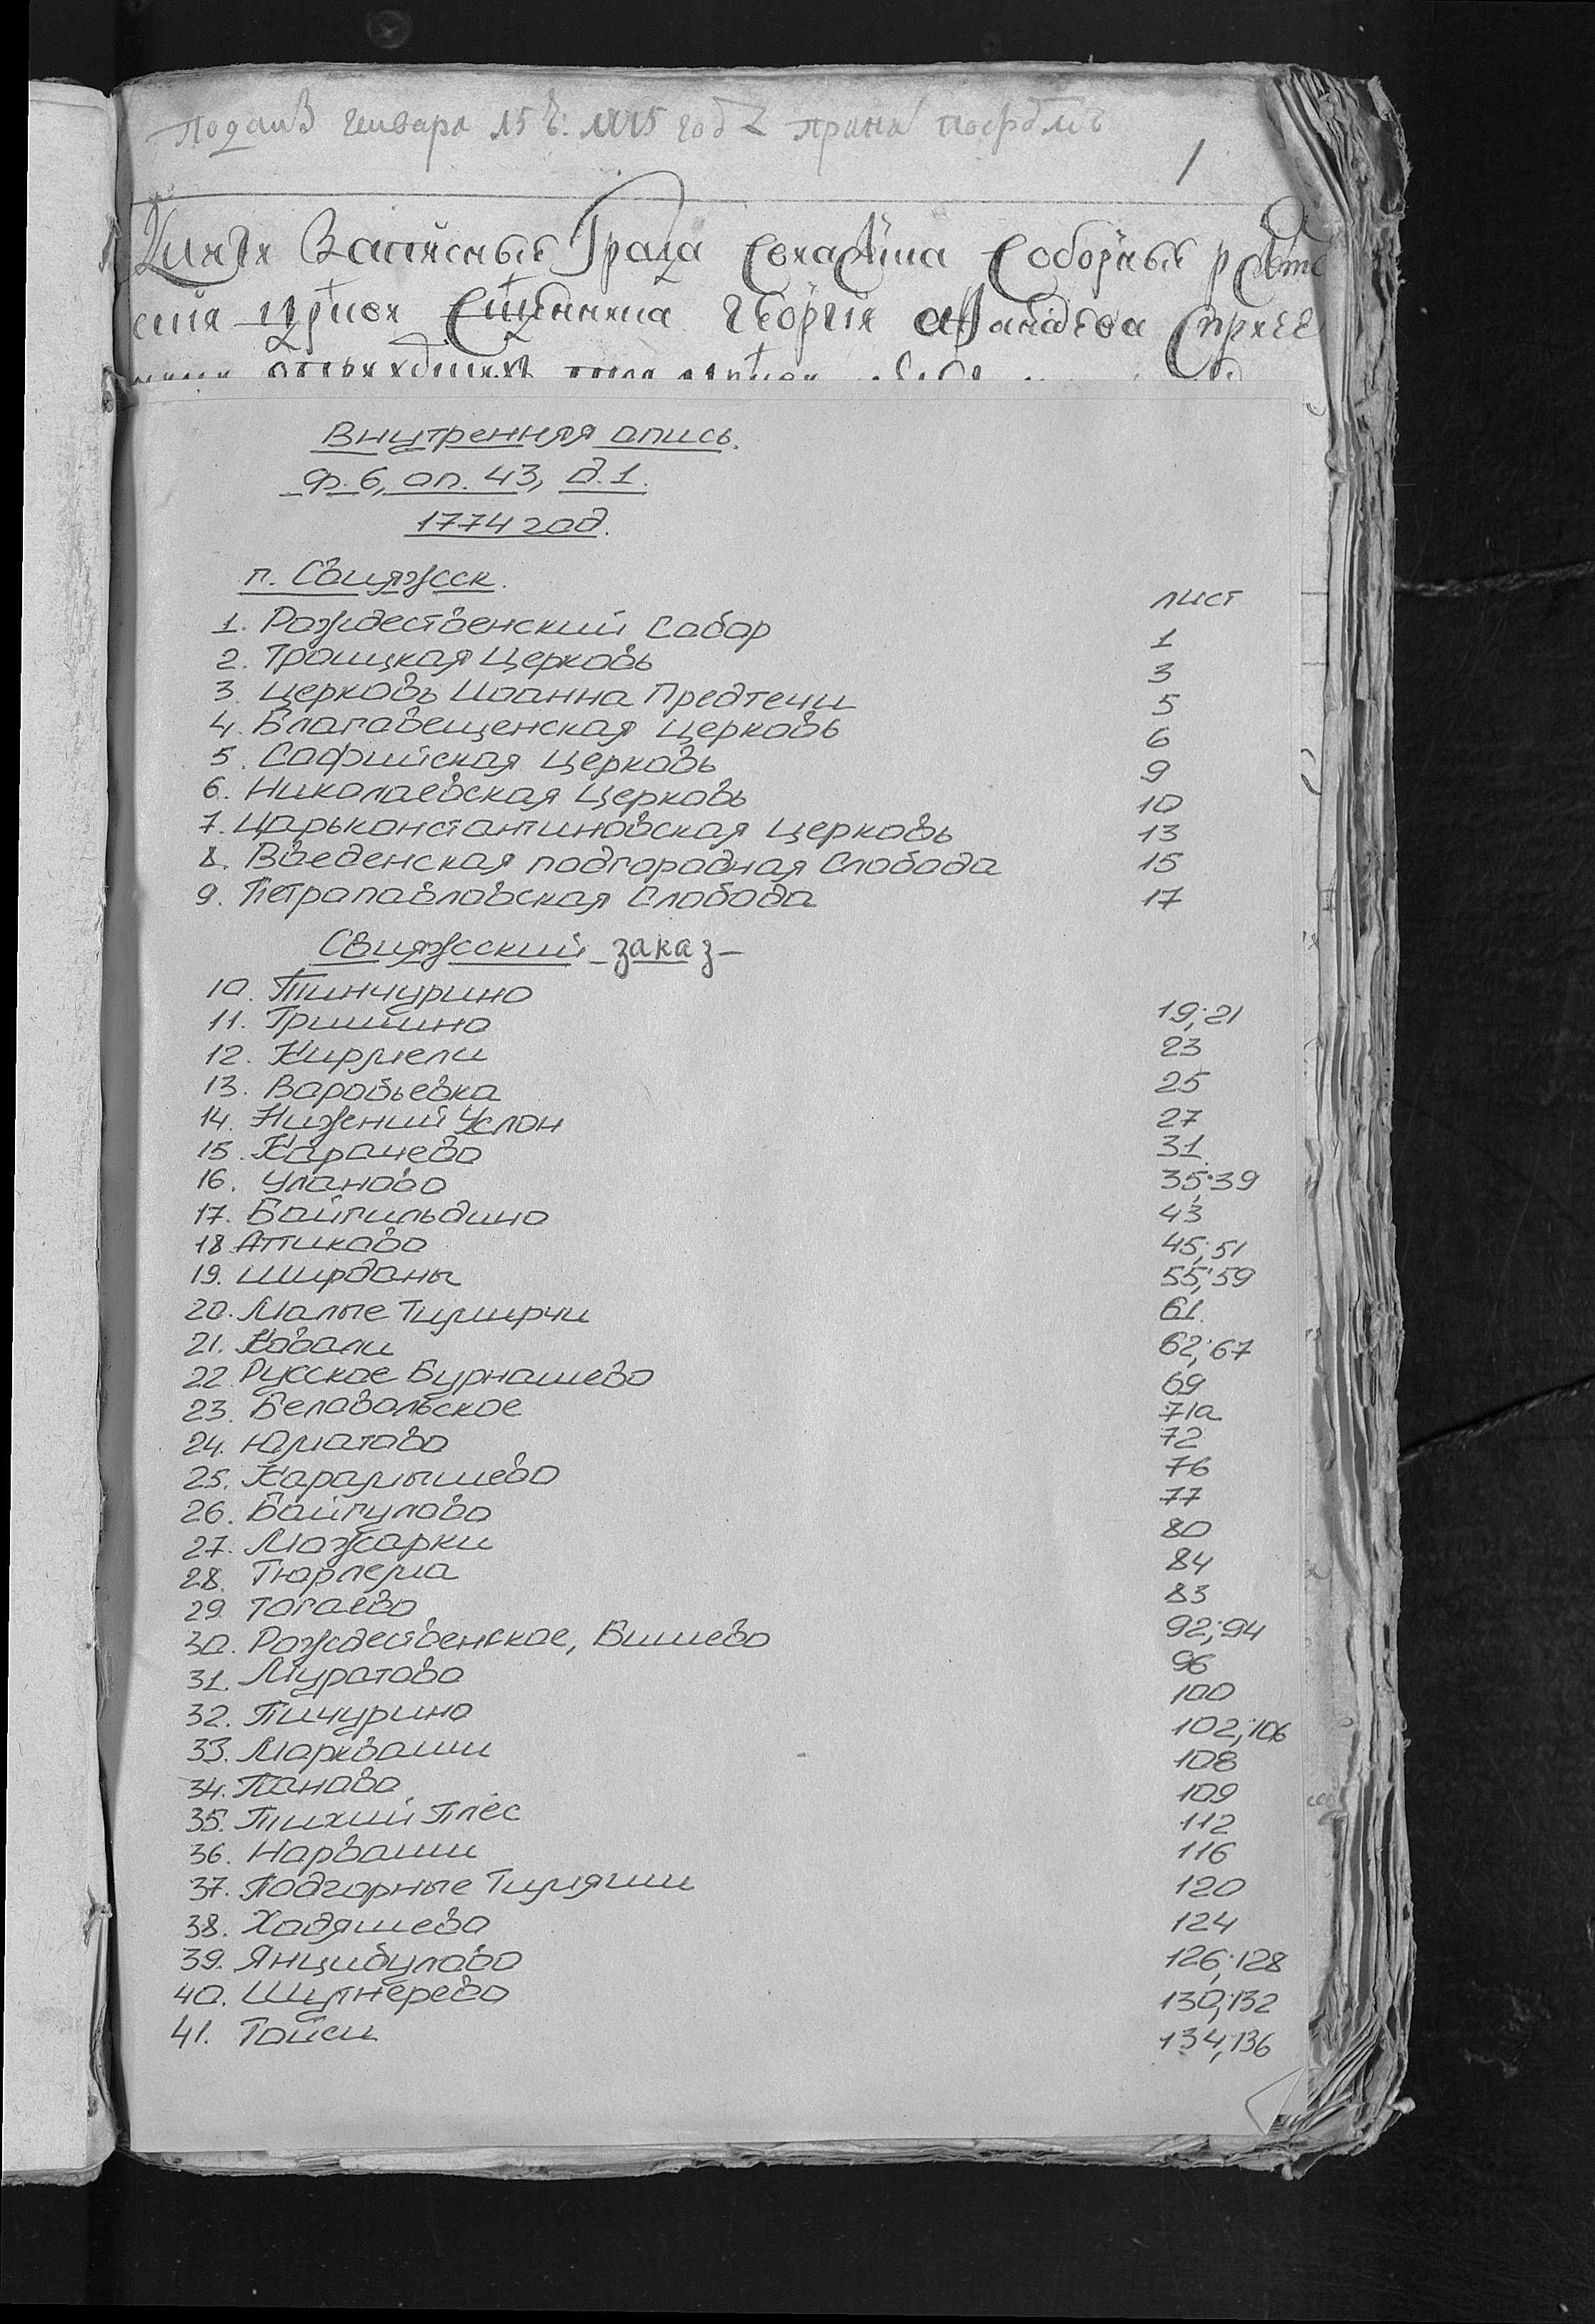 генваря 15 ч: 1775 год
1
Книги Записные Града Свияжска Соборныя
церкви Священника Георгия Афанасьева
Внутренняя опись.
ф. 6, оп. 43, д. 1.
1774 год.
п. Свияжск.
лист
1. Рождественский Собор 1
2. Троицкая Церковь 3
3. Церковь Иоанна Предтечи 5
4. Благовещенская Церковь 6
5. Софийская Церковь 9
6. Николаевская Церковь 10
7. Царьконстантиновская Церковь 13
8. Введенская подгородная Слобода 15
9. Петропавловская Слобода 17
Свияжский заказ
10. Тинчурино 19; 21
11. Гришино 23
12. Кирмели 25
13. Воробьевка 27
14. Нижний Услон 31
15. Карачево 35; 39
16. Уланово 43
17. Байгильдино 45; 51
18. Атиково 55; 59
19. Ширданы 61
20. Малые Тимирчи 62; 67
21. Ковали 69
22. Русское Бурнашево 71а
23. Беловольское 72
24. Юматово 76
25. Карамышево 77
26. Байгулово 80
27. Можарки 84
28. Тюрлема 83
29. Тогаево 92; 94
30. Рождественское, Бишево 96
31. Муратово 100
32. Пичурино 102; 106
33. Маркваши 108
34. Паново 109
35. Тихий Плёс 112
36. Нарваши 116
37. Подгорные Тимяши 120
38. Ходяшево 124
39. Янцибулово 126; 128
40. Шутнерево 130; 132
41. Тойси 134; 136